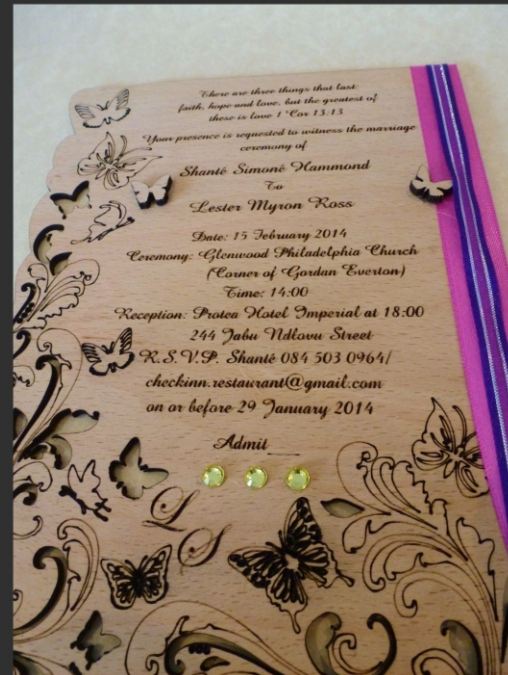 There are three things that last:
faith, hope and love, but the greatest of
these is love 1 'Cor 13:13
Your presence is requested to witness the marriage
ceremony of
Shanté Simoné Hammond
To
Lester Myron Ross
Date: 15 February 2014
Ceremony: Glenwood Philadelphia Church
(Corner of Gordan Everton)
Time: 14:00
Reception: Protea Hotel Imperial at 18:00
244 Jabu Ndlovu Street
R.S.V.P. Shanté 084 503 0964/
checkinn.restaurant@gmail.com
on or before 29 January 2014
Admit __
L
S